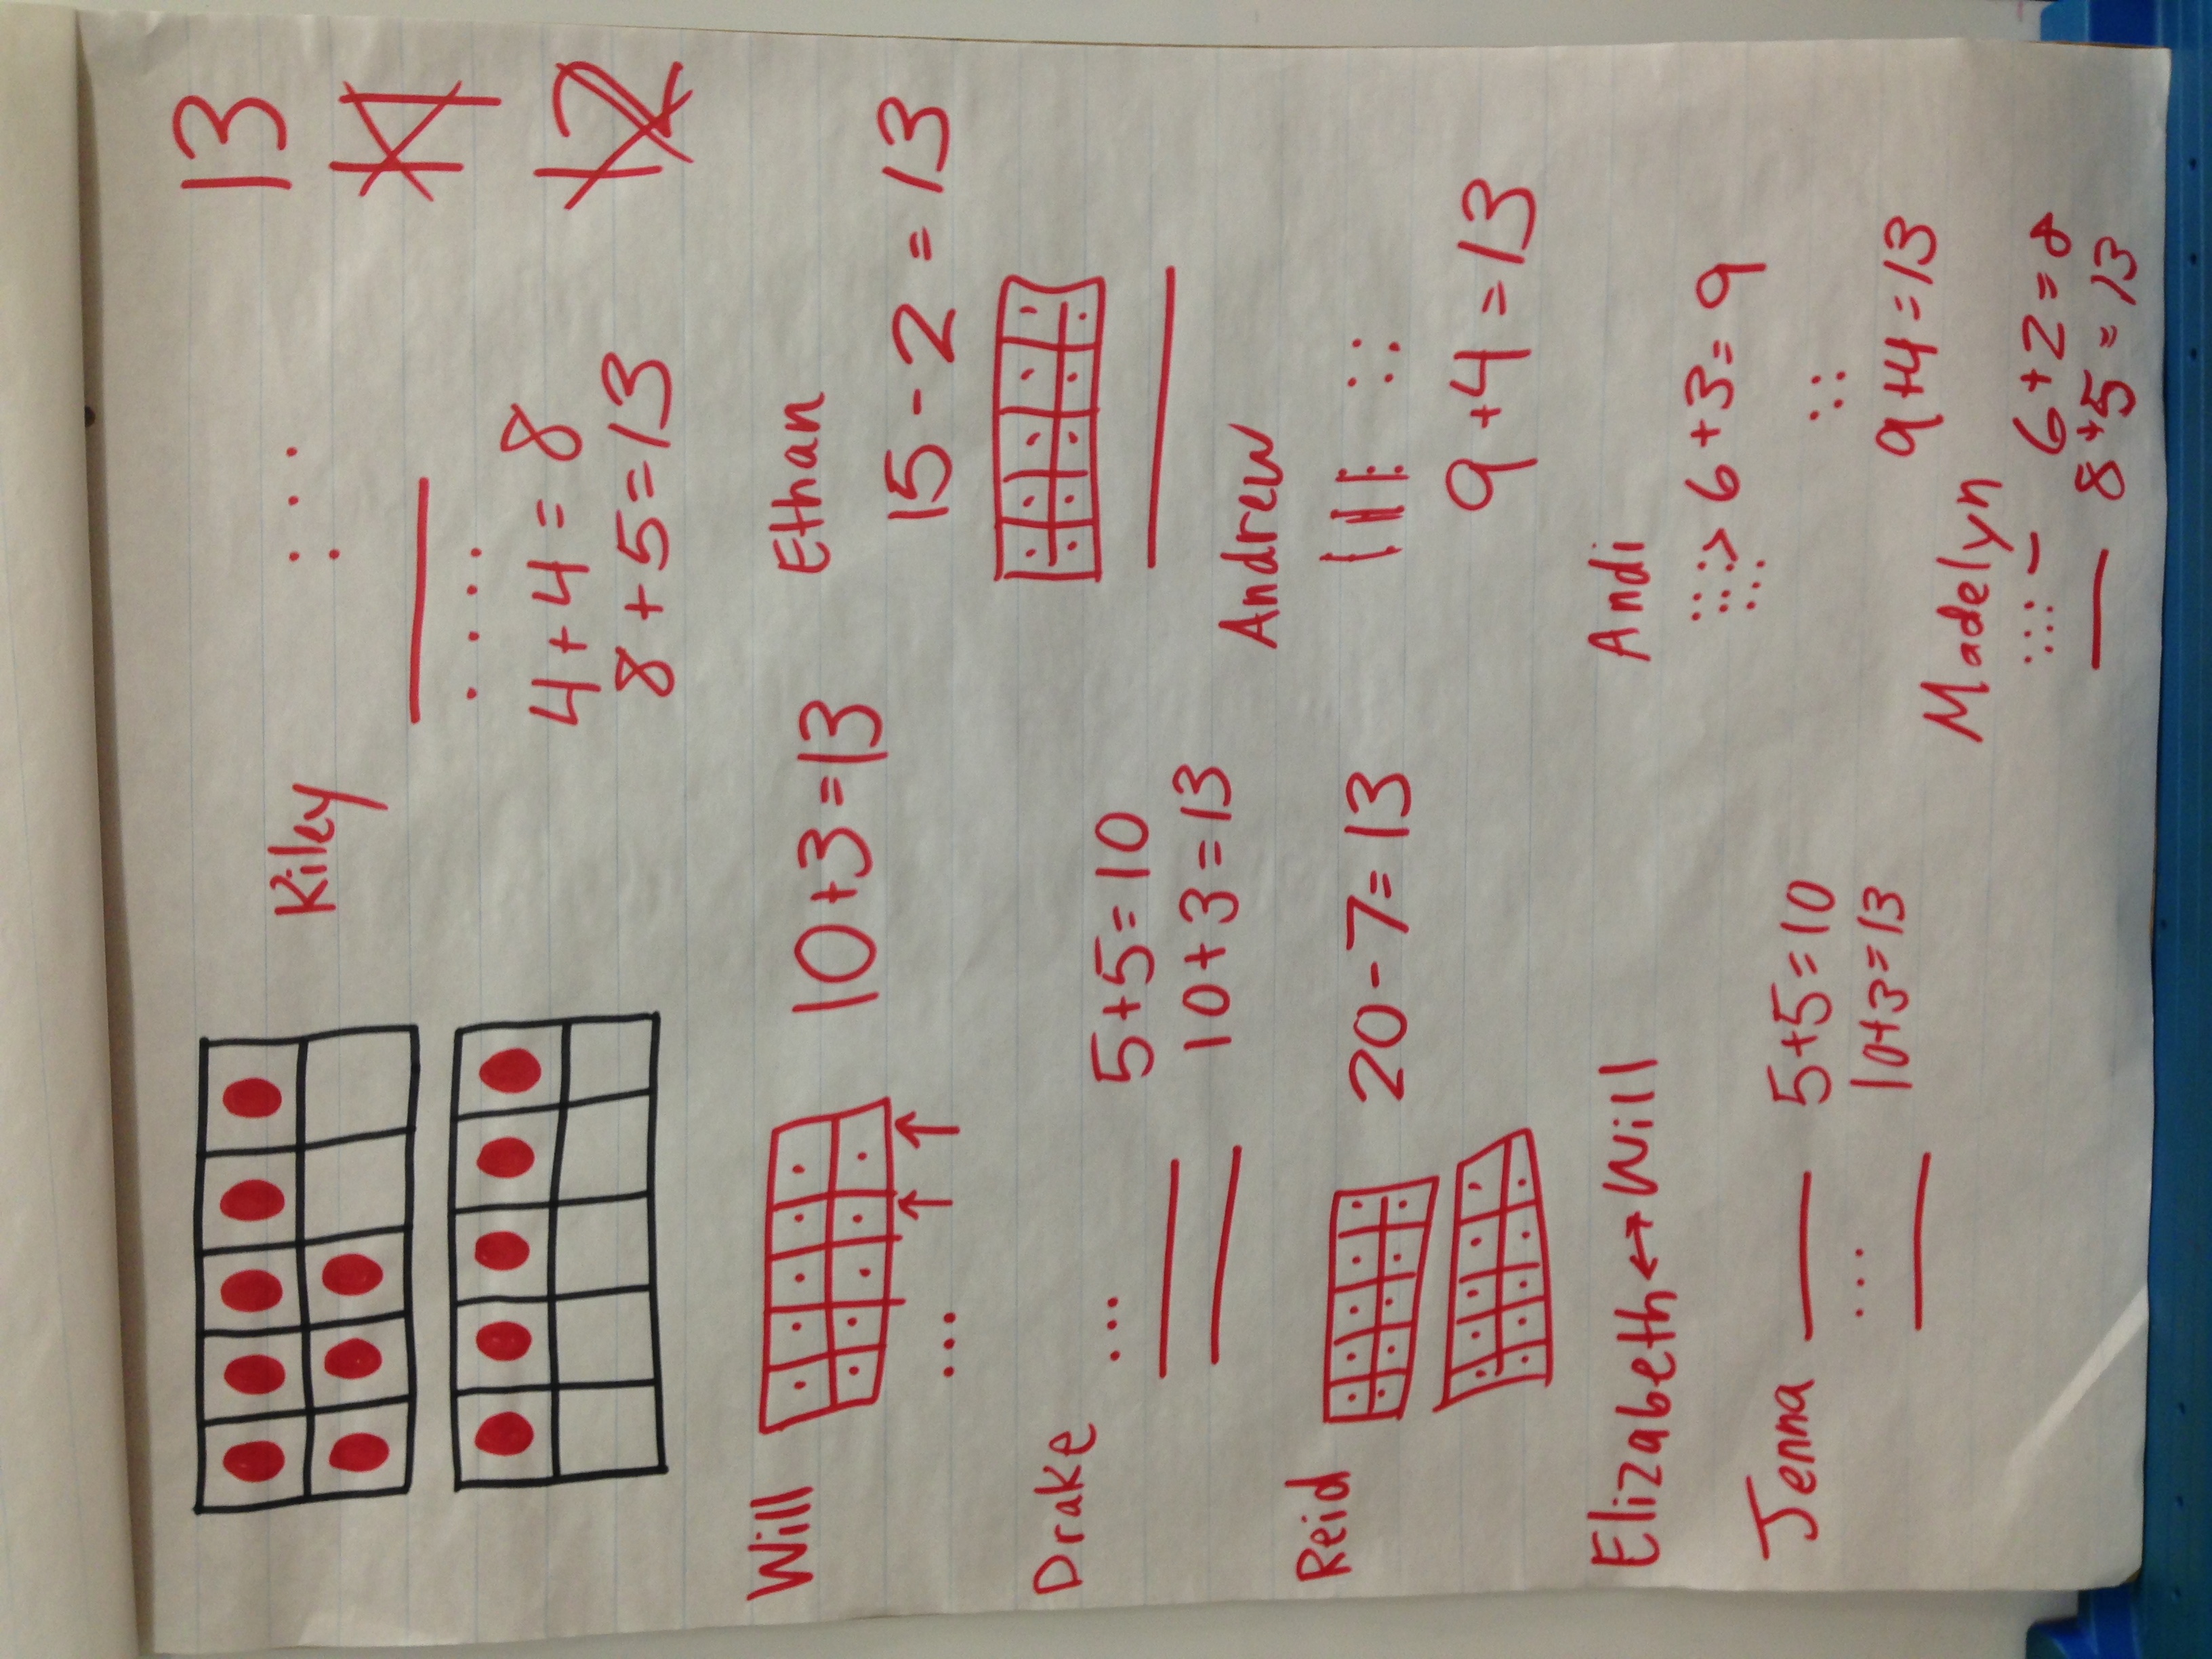 13
11
12
Kiley
4+4=8
8+5=13
Will
10+3=13
Ethan
15-2=13
Drake
5+5=10
10+3=13
Andrew
9+4=13
Reid
20-7=13
Andi
6+3=9
9+4=13
Elizabeth↔Will
Jenna
5+5=10
10+3=13
Madelyn
6+2=8
8+5=13